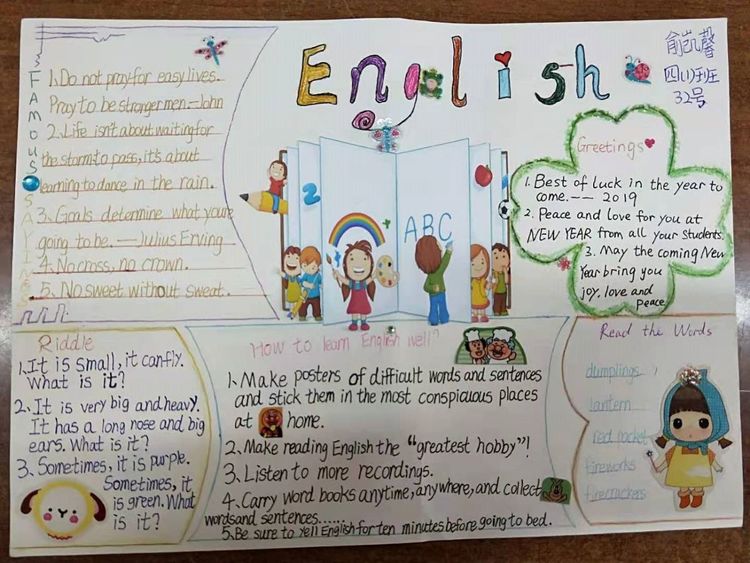 English
俞凯馨
四(1)班
32号
FAMOUS SAYINGS
1. Do not pray for easy lives.
Pray to be stronger men.—John
2. Life isn't about waiting for
the storm to pass, it's about
learning to dance in the rain.
3. Goals determine what youre
going to be.—Julius Erving
4. No cross, no crown.
5. No sweet without sweat.
2
ABC
Greetings
1. Best of luck in the year to
come.—— 2019
2. Peace and love for you at
NEW YEAR from all your students.
3. May the coming New
Year bring you
joy, love and
peace
Riddle
1. It is small, it can fly.
What is it?
2. It is very big and heavy.
It has a long nose and big
ears. What is it?
3. Sometimes, it is purple.
Sometimes, it
is green. What
is it?
How to learn English well?
1. Make posters of difficult words and sentences
and stick them in the most conspiauous places
at home.
2. Make reading English the "greatest hobby"!
3. Listen to more recordings.
4. Carry word books anytime, anywhere, and collect
words and sentences......
5. Be sure to yell English for ten minutes before going to bed.
Read the Words
dumplings
lantern
red pocket
fireworks
firecrackers